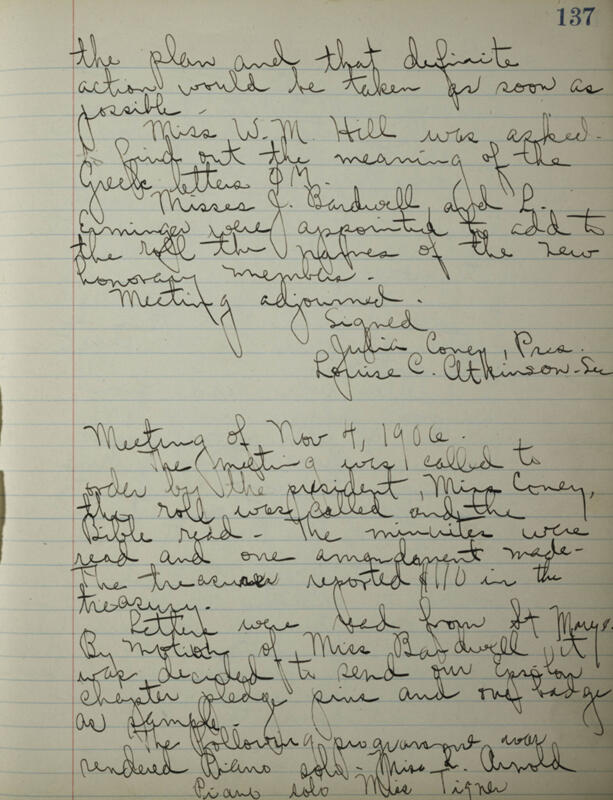 137
the plan and that definite
action would be taken as soon as
possible.
Miss W. M. Hill was asked
to find out the meaning of the
Greek letters Φ M.
Misses J. Bardwell and L.
Erminger were appointed to add to
the roll the names of the new
honorary members.
Meeting adjourned.
Signed
Julia Coney, Pres.
Louise C. Atkinson-Sec
Meeting of Nov 4, 1906.
The meeting was called to
order by the president, Miss Coney,
the roll was called and the
Bible read - The minutes were
read and one amendment made-
The treasurer reported $110 in the
treasury.
Letters were read from St Mary's.
By motion of Miss Bardwell it
was decided to send our Epsilon
chapter pledge pins and one badge
as sample.
The following programme was
rendered Piano solo - Miss L. Arnold
Piano solo Miss Tigner